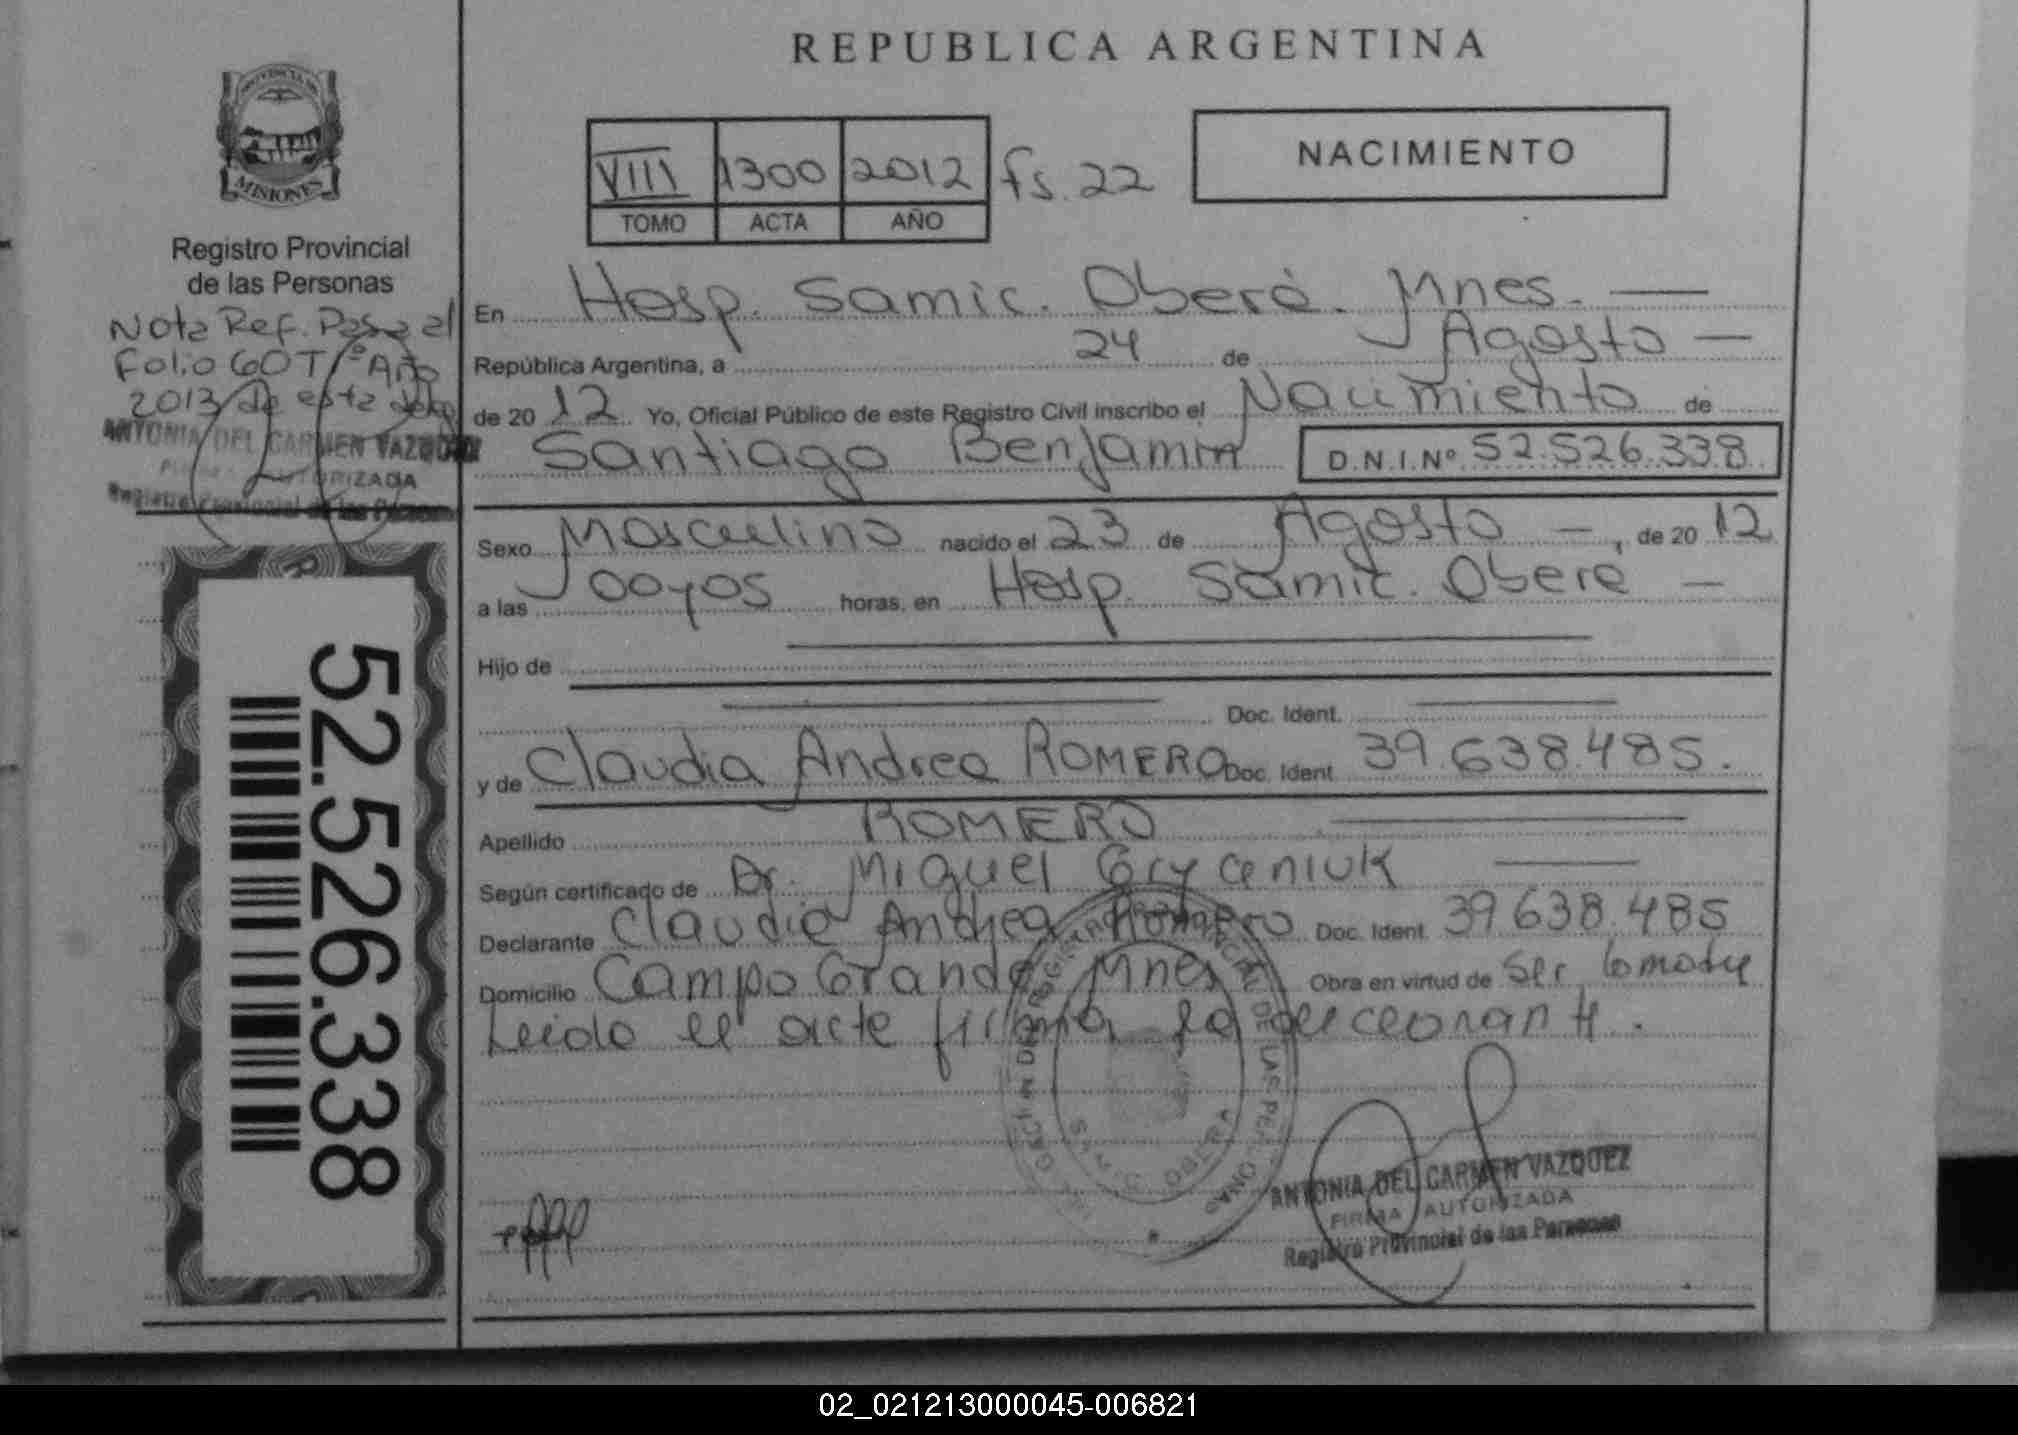 REPUBLICA ARGENTINA
PROVINCIA DE
MISIONES
Registro Provincial
de las Personas
Nota Ref. Pasa al
Folio 60 T 1º Año
2013 de esta
ANTONIA DEL CARMEN VAZQUEZ
FIRMA AUTORIZADA
Registro Provincial de las Personas
52.526.338
VIII 1300 2012 fs. 22
TOMO ACTA AÑO
NACIMIENTO
En Hosp. Samic. Oberá. Mnes.
República Argentina, a 24 de Agosto
de 20 12 Yo, Oficial Público de este Registro Civil inscribo el Nacimiento de
Santiago Benjamin D.N.I.Nº 52.526.338
Sexo Masculino nacido el 23 de Agosto , de 20 12
a las 00y05 horas, en Hosp. Samic. Oberá
Hijo de
Doc. Ident.
y de Claudia Andrea ROMERO Doc. Ident 39.638.485.
Apellido ROMERO
Según certificado de Dr. Miguel Gryceniuk
Declarante Claudia Andrea Romero Doc. Ident. 39.638.485
Domicilio Campo Grande Mnes Obra en virtud de Ser la madre
Leido el acta firma la declarante.
OBERA
ANTONIA DEL CARMEN VAZQUEZ
FIRMA AUTORIZADA
Registro Provincial de las Personas
02_021213000045-006821